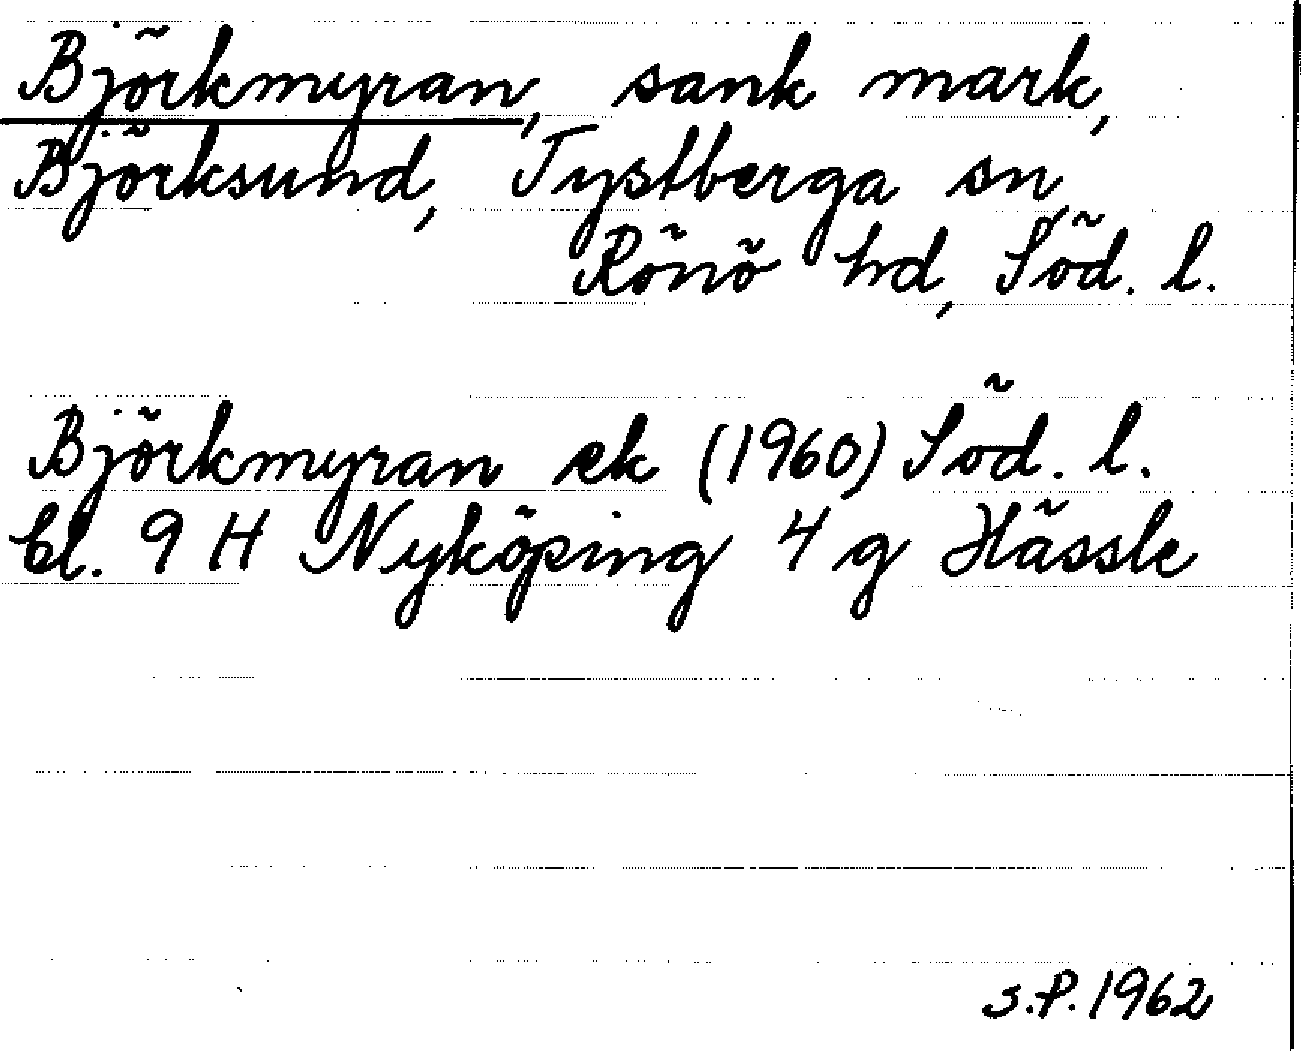 Björkmyran, sank mark,
Björksund, Tystberga sn,
Rönö hd, Söd. l.
Björkmyran ek (1960) Söd. l.
bl. 9 H Nyköping 4 g Hässle
S.P. 1962